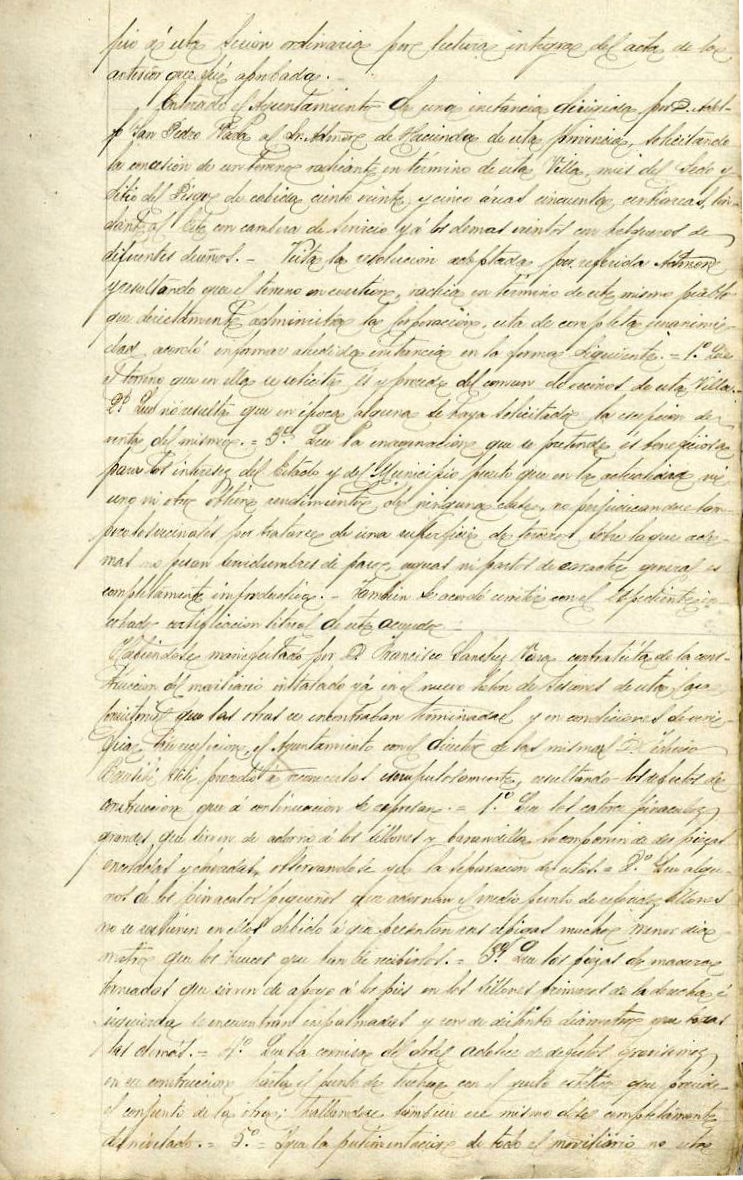 pio á esta Sesion ordinaria por lectura integra del acta de la
anterior que fué aprobada.
Enterado el Ayuntamiento de una instancia dirijida por D.
San Pedro al Sr. Admor de Hacienda de esta provincia, solicitando
la concesion de un terreno radicante en termino de esta Villa, mies del Sedo y
sitio del de cabida ciento veinte y cinco áreas cincuenta centiareas, lin-
dante al Este con cambera de servicio y á los demas vientos con
diferentes dueños. = Vista la resolucion adoptada por referida Admon
y resultando que el terreno en cuestion, radica en termino de este mismo pueblo
que directamente administra la Corporacion, esta de completa unanimi-
dad acordó informar aludida instancia en la forma siguiente. = 1º Que
el terreno que en ella se solicita es y procede del comun de vecinos de esta Villa. -
2º Que no resulta que en época alguna se haya solicitado la escepcion de
venta del mismo. = 3º Que la enagenacion que se pretende es beneficiosa
para los intereses del Estado y del Municipio puesto que en la actualidad ni
uno ni otro obtiene rendimiento de ninguna clase, no perjudicandose tam-
poco los vecinales por tratarse de una superficie de terreno, sobre la que ade-
mas no pesan servidumbres de paso, aguas ni pastos de caracter general es
completamente improductiva. - Tambien se acordó remitir con el espediente in-
certificacion literal de este acuerdo.
Habiendose manifestado por D. Francisco Sanchez contratista de la cons-
truccion del moviliario instalado yá en el nuevo Salon de Sesiones de esta Casa
Consistorial que las obras se encontraban terminadas y en condiciones de veri-
ficar su recepcion, el Ayuntamiento con el director de las mismas D.
procedió á reconocerlas escrupulosamente, resultando los defectos de
construccion que á continuacion se espresan. = 1º Que los catorce pinaculos
grandes que sirven de adorno á los sillones y barandilla, se componen de dos piezas
encoladas y observandose ya la separacion de estas. = 2º Que algu-
nos de los pinaculos pequeños que adornan el medio punto de referidos sillones
no se sostienen en ellos debido á que presentan sus espigas mucho menor dia-
metro que los huecos que han de recibirlos. = 3º Que las piezas de madera
torneadas que sirven de apoyo á los pies en los sillones primeros de la derecha é
izquierda se encuentran empalmadas y son de distinto diametro que todas
las demás. = 4º Que la cornisa del dosel adolece de defectos gravisimos
en su construccion hasta el punto de luchar con el gusto estético que preside
el conjunto de la obra; hallandose tambien ese mismo dosel completamente
desnivelado. = 5º = Que la pulimentacion de todo el moviliario no esta